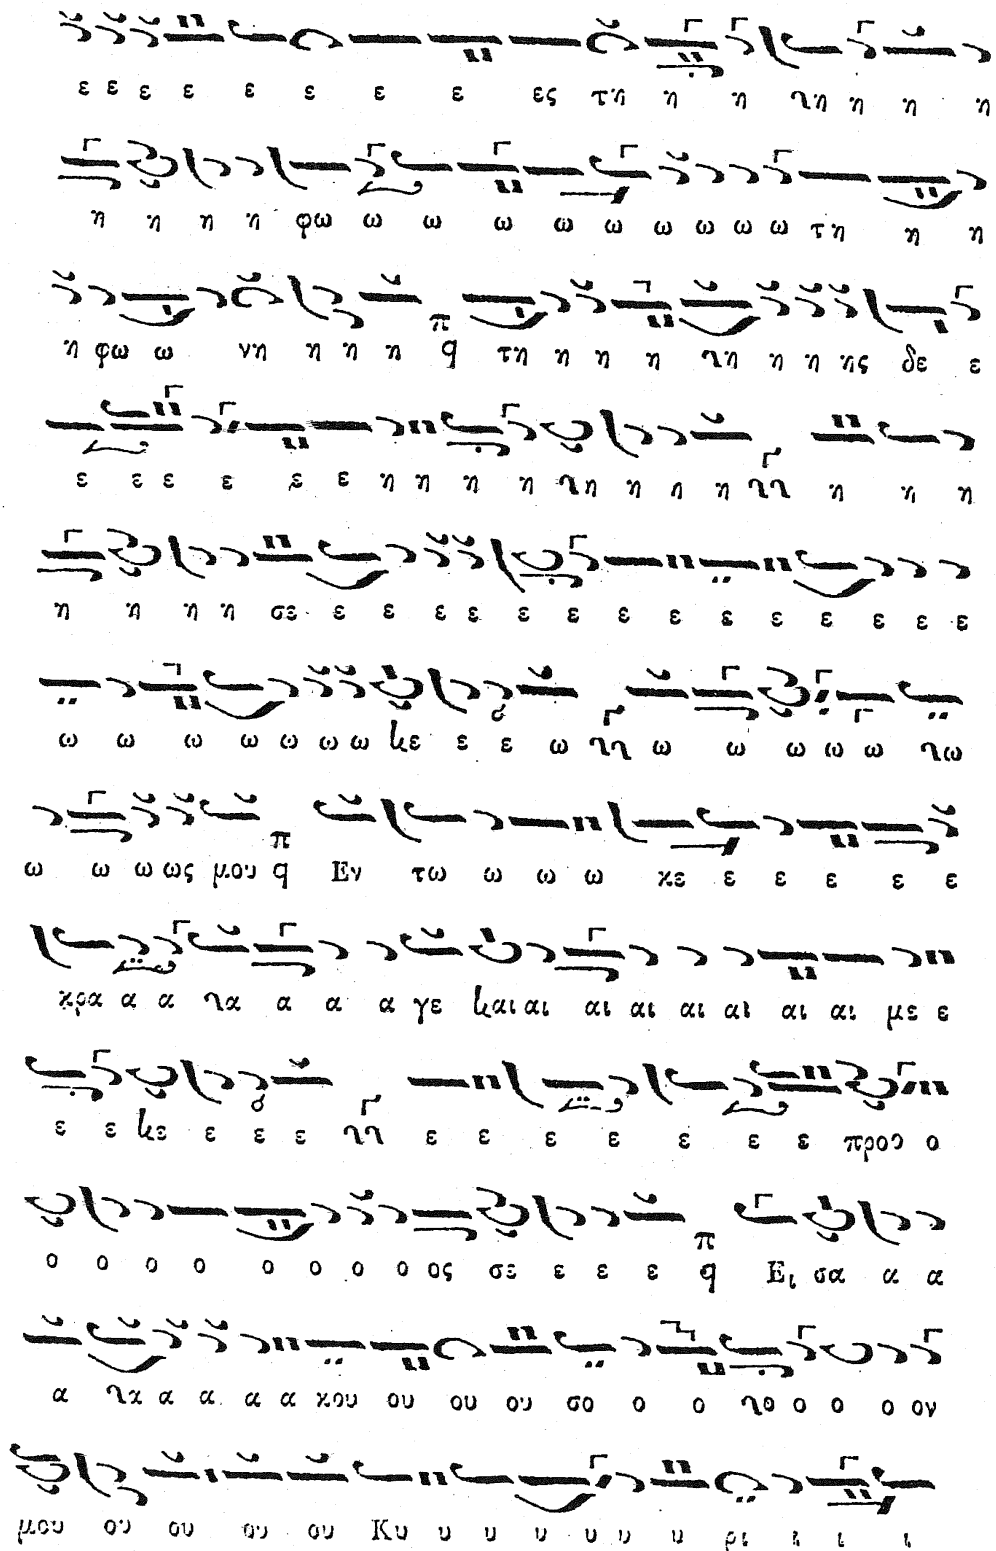 ε ε ε ε ε ε ε ε ες τη η η γη η η η
η η η η φω ω ω ω ω ω ω ω ω ω τη η η
η φω ω νη η η η π q τη η η η γη η η ης δε ε
ε ε ε ε ε ε η η η η γη η η η γγ η η η
η η η η σε ε ε ε ε ε ε ε ε ε ε ε ε ε
ω ω ω ω ω ω ω κε ε ε ω γγ ω ω ω ω ω γω
ω ω ω ως μου π q Εν τω ω ω ω κε ε ε ε ε ε
κρα α α γα α α α γε και αι αι αι αι αι αι αι με ε
ε ε κε ε ε ε γγ ε ε ε ε ε ε ε πρου ο
ο ο ο ο ο ο ο ο ος σε ε ε ε π q Ει σα α α
α γα α α α α κου ου ου ου σο ο ο γο ο ο ο ον
μου ου ου ου ου Κυ υ υ υ υ υ υ ρι ι ι ι